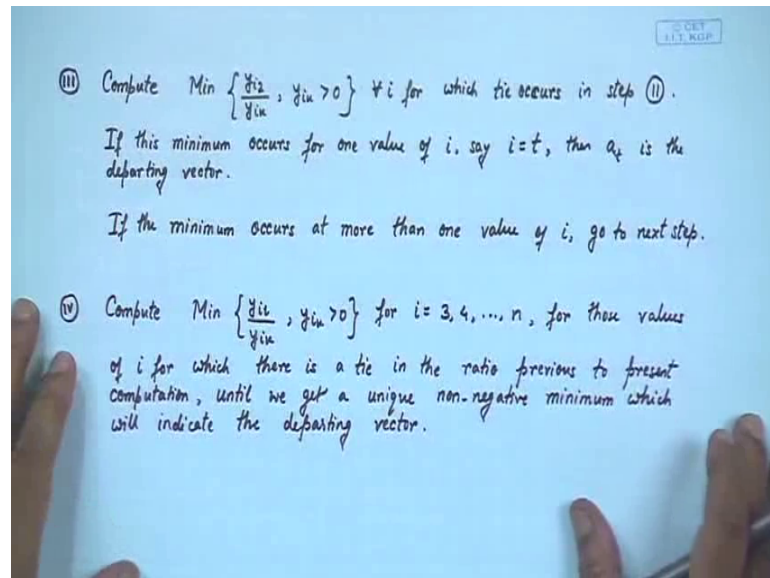 © CET
I.I.T. KGP
(III) Compute Min { y_{i2} / y_{ik} , y_{ik} > 0 } ∀ i for which tie occurs in step (II).
If this minimum occurs for one value of i. say i=t, then a_t is the
departing vector.
If the minimum occurs at more than one value of i, go to next step.
(IV) Compute Min { y_{it} / y_{ik} , y_{ik} > 0 } for i = 3, 4, ..., n, for those values
of i for which there is a tie in the ratio previous to present
computation, until we get a unique non-negative minimum which
will indicate the departing vector.